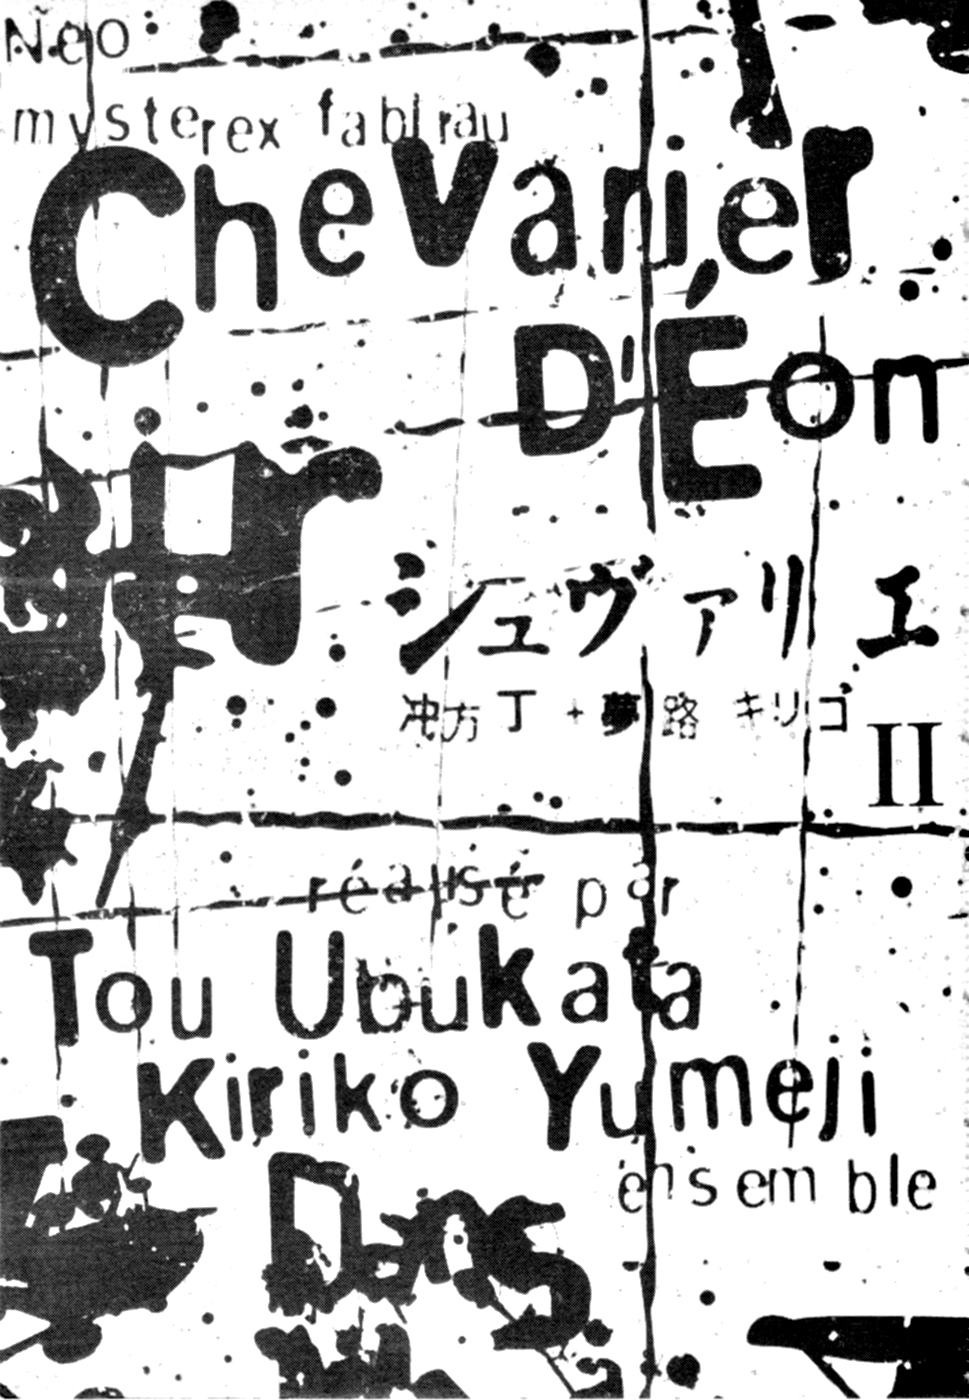 Neo
mysterex fablrau
Chevarier
D'Éon
シュヴァリエ
冲方丁+夢路キリコ
II
réalisé par
Tou Ubukata
Kiriko Yumeji
ensemble
Dans